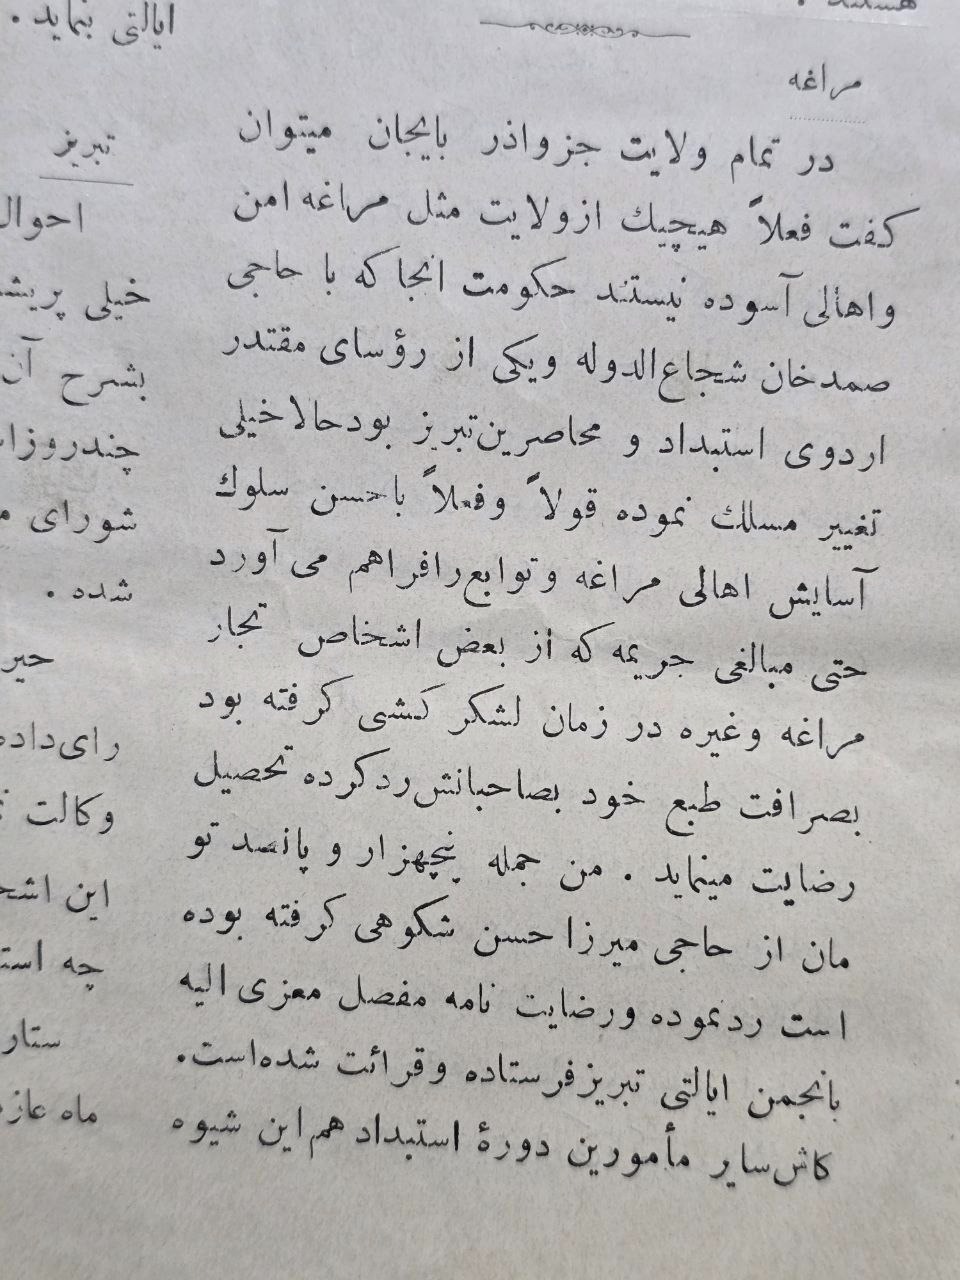 ایالتی بنماید .
مراغه
در تمام ولایت جزواذر بایجان میتوان
کفت فعلاً هیچیك ازولایت مثل مراغه امن
واهالی آسوده نیستند حکومت آنجا که با حاجی
صمدخان شجاع‌الدوله ویکی از رؤسای مقتدر
اردوی استبداد و محاصرین‌تبریز بودحالاخیلی
تغییر مسلك نموده قولاً وفعلاً باحسن سلوك
آسایش اهالی مراغه وتوابع‌رافراهم می آورد
حتی مبالغی جریمه که از بعض اشخاص تجار
مراغه وغیره در زمان لشکر کشی کرفته بود
بصرافت طبع خود بصاحبانش‌ردکرده تحصیل
رضایت مینماید . من جمله پنچهزار و پانصد تو
مان از حاجی میرزا حسن شکوهی کرفته بوده
است ردنموده ورضایت نامه مفصل معزی الیه
بانجمن ایالتی تبریزفرستاده وقرائت شده‌است.
کاش‌سایر مأمورین دورۀ استبداد هم‌این شیوه
تبریز
احوال
خیلی
بشرح آن
شورای
شده .
رای‌داده
وکالت
این
چه
ستار
ماه